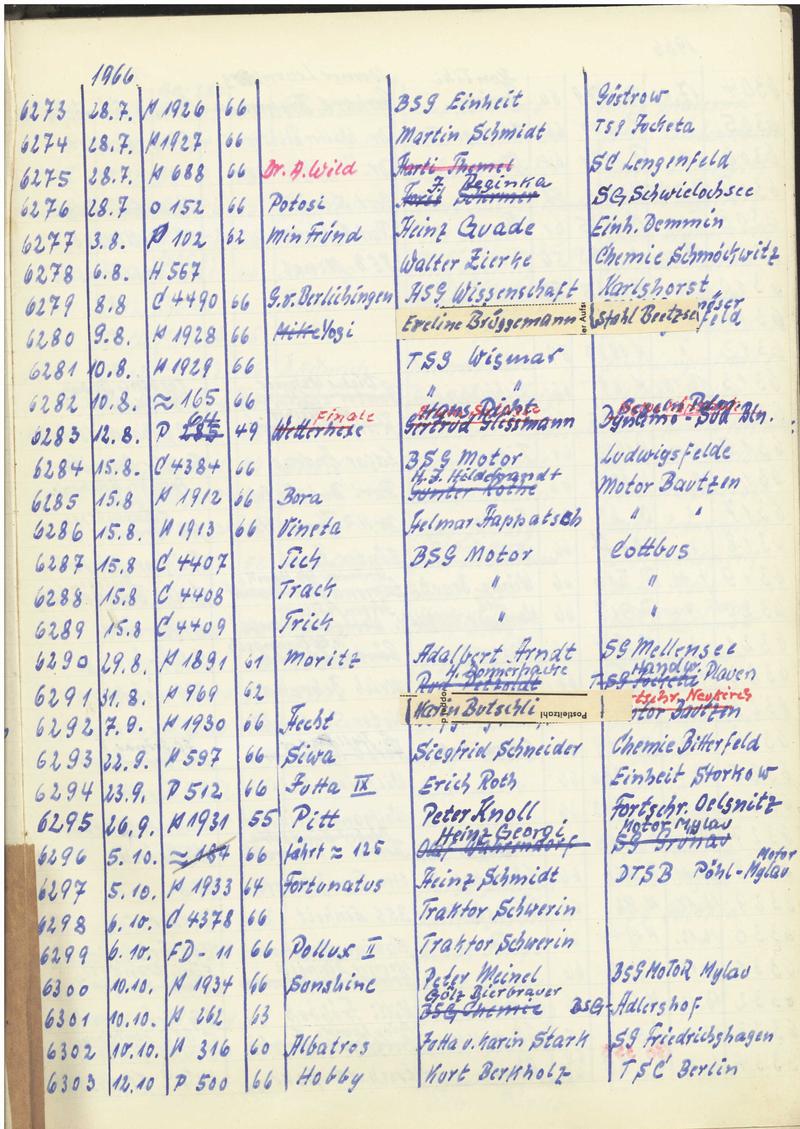 1966
6273 28.7. H 1926 66 BSG Einheit Güstrow
6274 28.7. H 1927 66 Martin Schmidt TSG Jocketa
6275 28.7. H 688 66 Dr. A. Wild Harti Themel SC Lengenfeld
Reginka
6276 28.7 O 152 66 Potosi SG Schwielochsee
6277 3.8. P 102 62 Min Fründ Heinz Quade Einh. Demmin
6278 6.8. H 567 Walter Zierke Chemie Schmöckwitz
6279 8.8 C 4490 66 G.v. Berlichingen HSG Wissenschaft Karlshorst
6280 9.8. H 1928 66 Mitte Yogi Eveline Brüggemann Stahl Beetzse feld
6281 10.8. H 1929 66 TSG Wismar
6282 10.8. ≈ 165 66 " "
Finale
6283 12.8. P 285 49 Wetterhexe Gertrud Dynamo-Süd Bln.
6284 15.8. C 4384 66 BSG Motor Ludwigsfelde
H.J. Hildebrandt
6285 15.8 H 1912 66 Bora Günter Kothe Motor Bautzen
6286 15.8. H 1913 66 Vineta Helmar Happatsch " "
6287 15.8 C 4407 Tich BSG Motor Cottbus
6288 15.8 C 4408 Track " "
6289 15.8 C 4409 Trick " "
6290 29.8. H 1891 61 Moritz Adalbert Arndt SG Mellensee
Handw.
6291 31.8. H 969 62 TSG Jocketa Plauen
tschr. Neukirch
6292 7.9. H 1930 66 Hecht Karin Butschli Postleitzahl tor Bautzen
6293 22.9. H 597 66 Siwa Siegfrid Schneider Chemie Bitterfeld
6294 23.9. P 512 66 Jutta IX Erich Roth Einheit Storkow
6295 26.9. H 1931 55 Pitt Peter Knoll Fortschr. Oelsnitz
Heinz Georgi Motor Mylau
6296 5.10. ≈ 187 66 fährt ≈ 125 Olaf SG Grünau
Motor
6297 5.10. H 1933 64 Fortunatus Heinz Schmidt DTSB Pöhl-Mylau
6298 6.10. C 4378 66 Traktor Schwerin
6299 6.10. FD-11 66 Pollux I Traktor Schwerin "
6300 10.10. H 1934 66 Sunshine Peter Meinel BSG Motor Mylau
Götz Bierbrauer
6301 10.10. H 262 63 BSG Chemie BSG-Adlershof
6302 10.10. H 316 60 Albatros Jutta u. Karin Stark SG Friedrichshagen
6303 12.10 P 500 66 Hobby Kurt Berkholz TSC Berlin